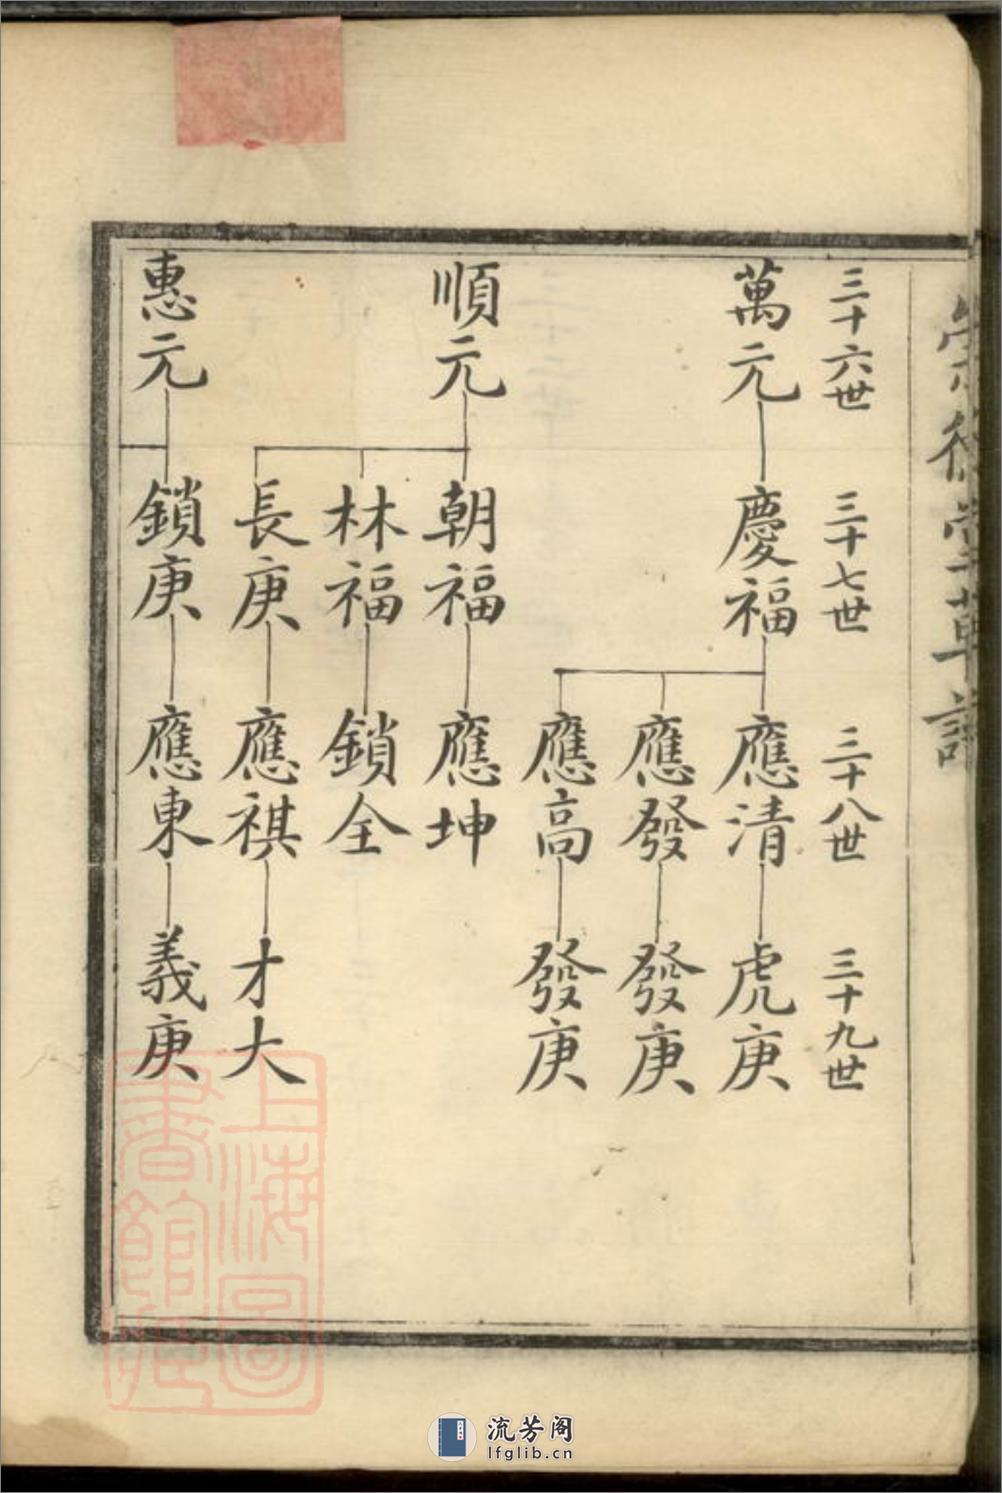 堂草譜
三十六世
三十七世
三十八世
三十九世
萬元
慶福
應清
虎庚
應發
發庚
應高
發庚
順元
朝福
應坤
林福
鎖全
長庚
應祺
才大
惠元
鎖庚
應東
義庚
上海圖
書館藏
流芳阁
lfglib.cn